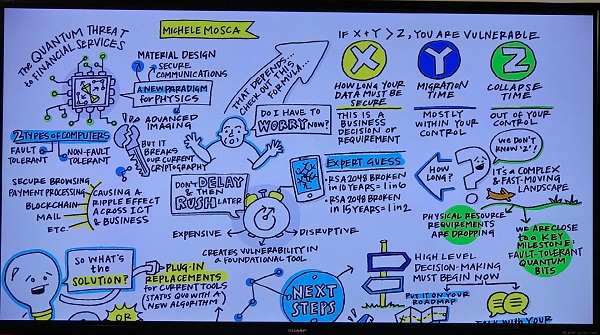 THE QUANTUM THREAT
TO FINANCIAL SERVICES
MICHELE MOSCA
MATERIAL DESIGN
SECURE
COMMUNICATIONS
A NEW PARADIGM
for PHYSICS
ADVANCED
IMAGING
BUT IT
BREAKS
OUR CURRENT
CRYPTOGRAPHY
2 TYPES OF COMPUTERS
FAULT
TOLERANT
NON-FAULT
TOLERANT
SECURE BROWSING
PAYMENT PROCESSING
BLOCKCHAIN
MAIL
ETC.
CAUSING A
RIPPLE EFFECT
ACROSS ICT
& BUSINESS
THAT DEPENDS...
CHECK OUT THIS
FORMULA...
DO I HAVE TO
WORRY NOW?
IF X+Y > Z, YOU ARE VULNERABLE
X
HOW LONG YOUR
DATA MUST BE
SECURE
THIS IS A
BUSINESS
DECISION OR
REQUIREMENT
Y
MIGRATION
TIME
MOSTLY
WITHIN YOUR
CONTROL
Z
COLLAPSE
TIME
OUT OF YOUR
CONTROL
WE DON'T
KNOW 'Z'!
HOW
LONG?
?
IT'S A COMPLEX
& FAST-MOVING
LANDSCAPE
PHYSICAL RESOURCE
REQUIREMENTS
ARE DROPPING
WE ARE CLOSE
to A KEY
MILESTONE:
FAULT-TOLERANT
QUANTUM
BITS
EXPERT GUESS
• RSA 2048 BROKEN
in 10 YEARS = 1 in 6
• RSA 2048 BROKEN
in 15 YEARS = 1 in 2
DON'T DELAY
& THEN
RUSH LATER
EXPENSIVE
DISRUPTIVE
CREATES VULNERABILITY IN
A FOUNDATIONAL TOOL
SO WHAT'S
the
SOLUTION?
PLUG-IN
REPLACEMENTS
for CURRENT TOOLS
(STATUS QUO WITH A
NEW ALGORITHM)
OR
NEXT
STEPS
HIGH LEVEL
DECISION-MAKING
MUST BEGIN NOW
PUT IT ON YOUR
ROADMAP
TALK WITH YOUR
SHARP